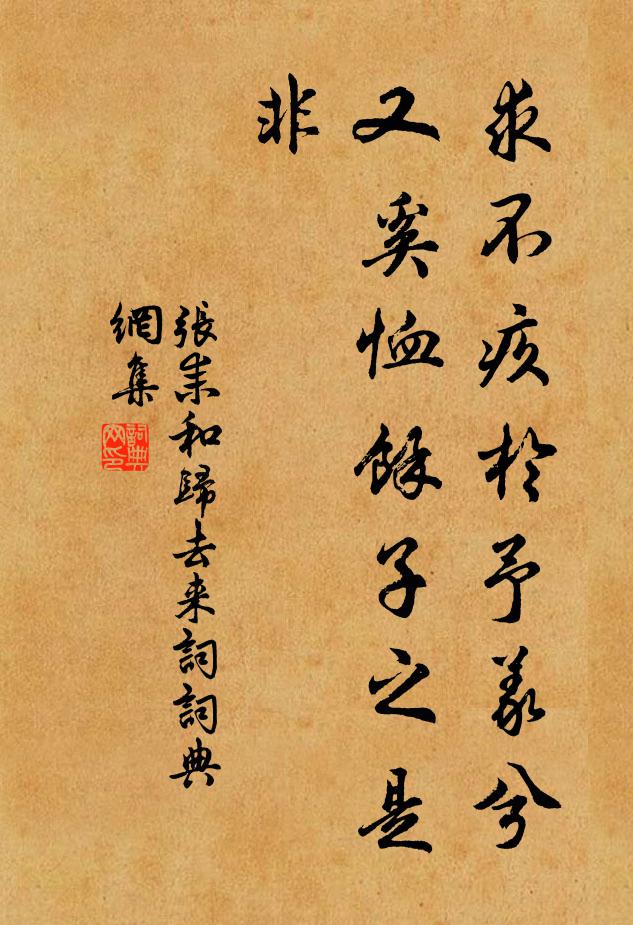 求不疚於予義兮
又奚恤餘子之是
非
張耒和歸去来詞詞典
網集
詞典
網印